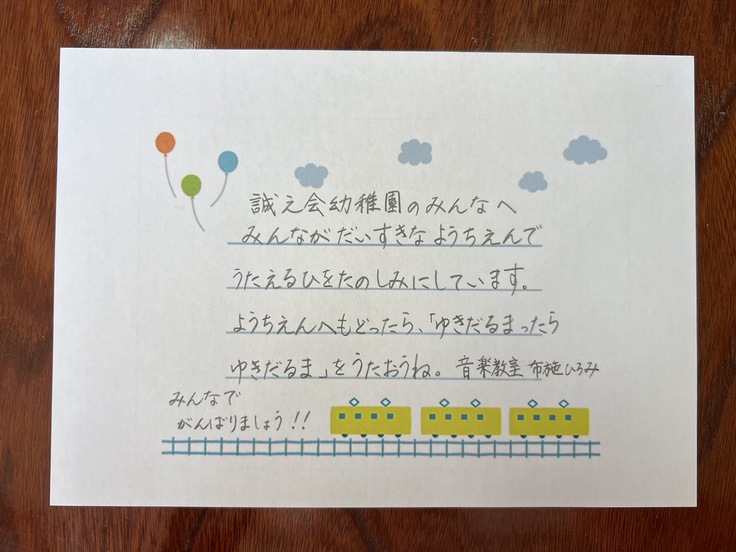 誠え会幼稚園のみんなへ
みんながだいすきなようちえんで
うたえるひをたのしみにしています。
ようちえんへもどったら、「ゆきだるまったら
ゆきだるま」をうたおうね。 音楽教室 布施ひろみ
みんなで
がんばりましょう!!